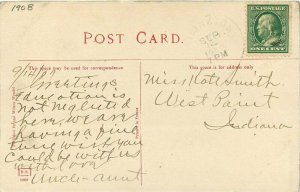 1908
POST CARD.
U.S. POSTAGE
ONE CENT
SEP
PM
This space may be used for correspondence
The address only to be written here
9/12/09
Greetings
devotion is
not neglected
here, we are
having a fine
time wish you
could be with us
with love
Uncle-Aunt
Miss Kate Smith
West Point
Indiana